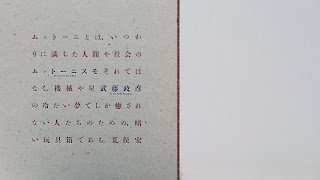 ムットーニとは、いつわ
りに満ちた人間や社会の
ムットーニスモそれでは
なく、機械や星武藤政彦
の冷たい夢でしか癒され
ない人たちのための、暗
い玩具箱である。荒俣宏